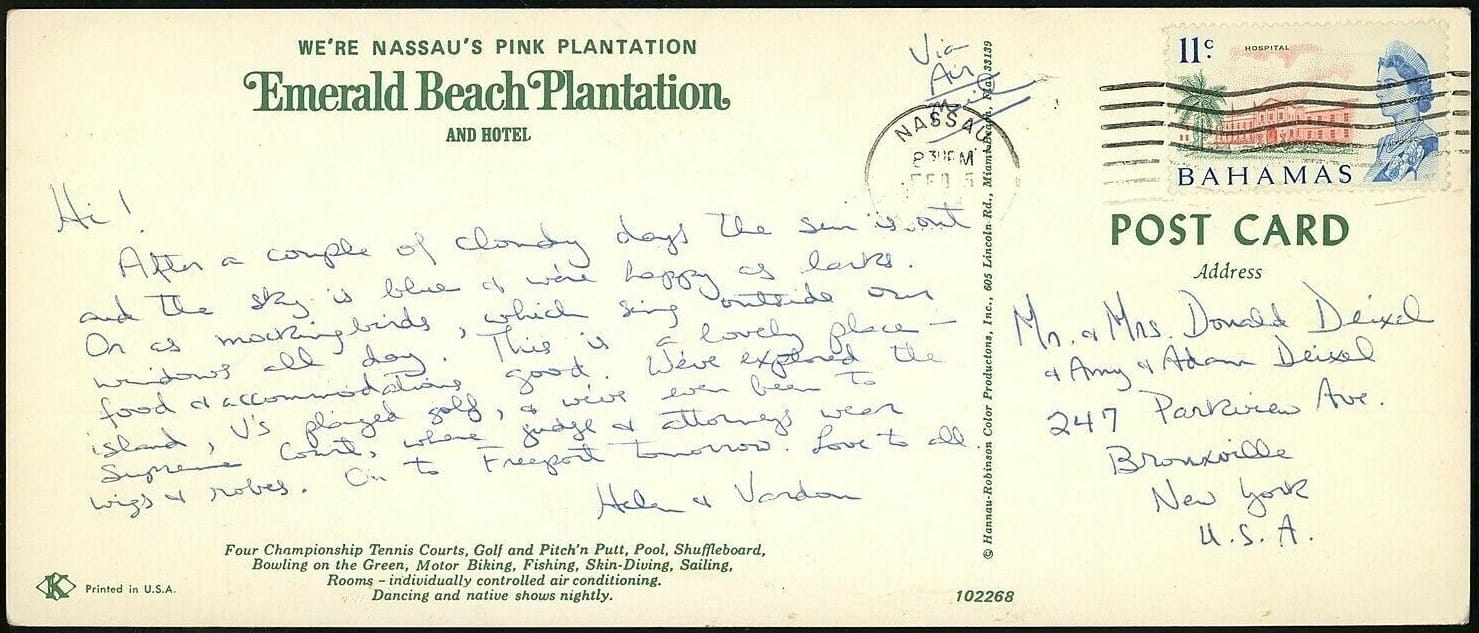 WE'RE NASSAU'S PINK PLANTATION
Emerald Beach Plantation
AND HOTEL
Via
Air
Mail
NASSAU
PM
FEB 5
11c
HOSPITAL
BAHAMAS
POST CARD
Address
Hi!
After a couple of cloudy days the sun is out
and the sky is blue & we're happy as larks.
Or as mockingbirds, which sing outside our
windows all day. This is a lovely place –
food & accommodations good. We've explored the
island, V's played golf, & we've even been to
Supreme Court, where judge & attorneys wear
wigs & robes. On to Freeport tomorrow. Love to all.
Helen & Vardon
Mr. & Mrs. Donald Deixel
& Amy & Adam Deixel
247 Parkview Ave.
Bronxville
New York
U.S.A.
© Hannau-Robinson Color Productons, Inc., 605 Lincoln Rd., Miami Beach, Fla. 33139
Four Championship Tennis Courts, Golf and Pitch'n Putt, Pool, Shuffleboard,
Bowling on the Green, Motor Biking, Fishing, Skin-Diving, Sailing,
Rooms – individually controlled air conditioning.
Dancing and native shows nightly.
K
Printed in U.S.A.
102268